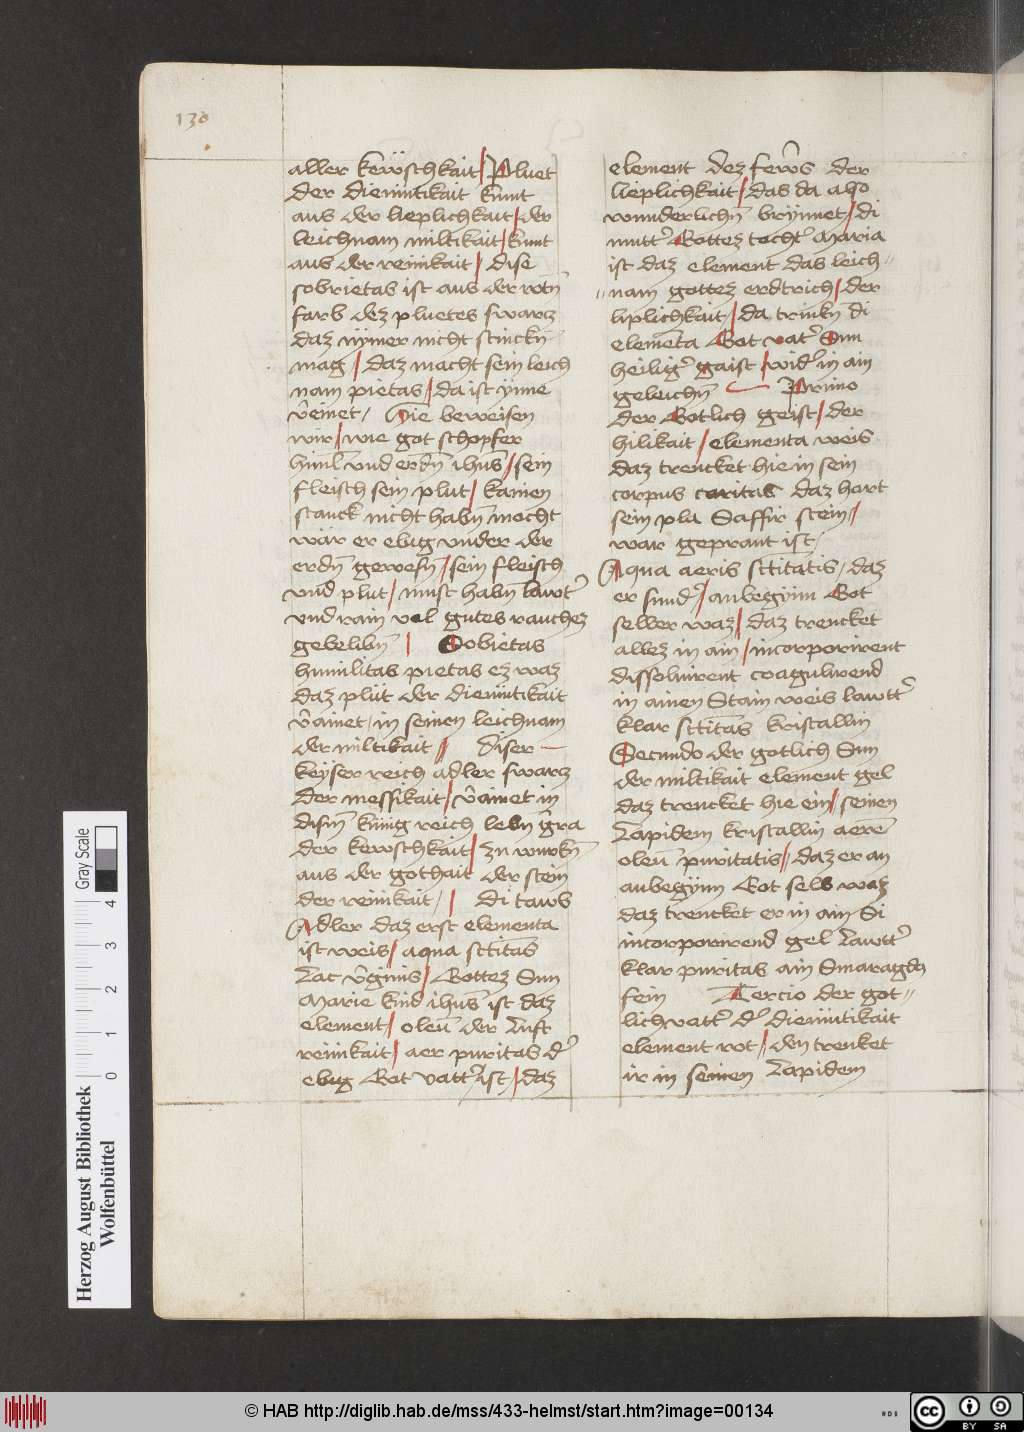 130
aller kewschkait / Pluet
der diemütikait kumt
aus der lieplichkait / der
leichnam miltikait / kumt
aus der reinikait / dise
sobrietas ist aus der rotn̄
farb dez pluetes swarz
daz nymer nicht stinckn̄
mag / daz macht sein leich
nam pietas / da ist ynne
v̄einet / Hie beweisen
wir / wie got schopfer
himl̄ vnd erdn̄ ihus̄ / sein
fleisch sein plut / kainen
stanck nicht habn̄ mocht
wär er ebig vnder der
erdn̄ gewesn̄ / sein fleisch
vnd plut / must habn̄ lawt̄
vnd rain vol gutes rauchez
gebelibn̄ / Sobietas
humilitas pietas ez waz
daz plüt der diemütikait
v̄ainet / in seinen leichnam
der miltikait // diser —
keyser reich adler swarz
der messikait / v̄ainet in
dism̄ künig reich lebn̄ gra
der kewschkait / zu wurkn̄
aus der gothait der stein
der reinikait / / di tawb
Adler daz erst elementa
ist weis / aqua sctitas̄
Lac v̄ginis / Gottez Sun
Marie kind ihus̄ ist daz
element / oleū der Luft
reinikait / aer puritas d̄
ebig Got vatt̄ ist / daz
element dez fewr̄s der
lieplichkait / das da also
wunderlichn̄ brynnet / di
mutt̄ Gottez tocht̄ Maria
ist daz element das leich=
=nam gottez erdtrich / der
liplichkait / da trinkn̄ di
elemēta Got vat̄ Sun
heiliḡ gaist / wid̄ in ain
geleichn̄ — Primo
der Gotlich geist / der
hilikait / elementa weis
daz trencket hie in sein
corpus caritas daz hart
sein pla Saffir stein //
war geprant ist /
Aqua aeris sctitatis / daz
er sund̄ / anbegyun Got
selber waz / daz trencket
allez in ain / incorporirent
dissoluirent coagulirend
in ainen Stain weis lawtt̄
klar sctitas̄ kristallin
Secundo der gotlich Sun
der miltikait element gel
daz trencket hie ein / seinen
Lapidem kristallin aerē
oleū puritatis // daz er an
anbegynn Got selb waz
daz trencket er in ain Si
incorporirend gel Lawtt̄
klar puritas ain Smaragdn̄
fein Tercio der got=
lich vatt̄ d̄ diemütikait
element rot // den trenket
ir in seinen Lapidem
Herzog August Bibliothek
Wolfenbüttel
0 1 2 3 4
Gray Scale
© HAB http://diglib.hab.de/mss/433-helmst/start.htm?image=00134
cc BY SA